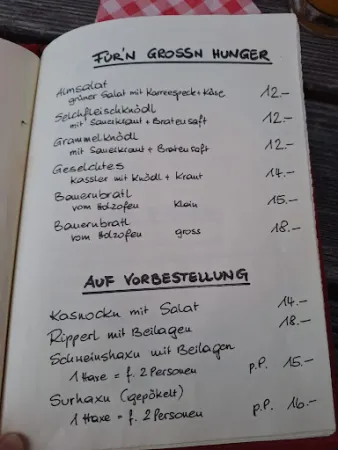 FÜR'N GROSSN HUNGER
Almsalat
grüner Salat mit Karreespeck + Käse 12.-
Selchfleischknödl
mit Sauerkraut + Bratensaft 12.-
Grammelknödl
mit Sauerkraut + Bratensaft 12.-
Geselchtes
Kassler mit Knödl + Kraut 14.-
Bauernbratl
vom Holzofen klein 15.-
Bauernbratl
vom Holzofen gross 18.-
AUF VORBESTELLUNG
Kasnockn mit Salat 14.-
Ripperl mit Beilagen 18.-
Schweinshaxn mit Beilagen
1 Haxe = f. 2 Personen p.P. 15.-
Surhaxn (gepökelt)
1 Haxe = f. 2 Personen p.P. 16.-